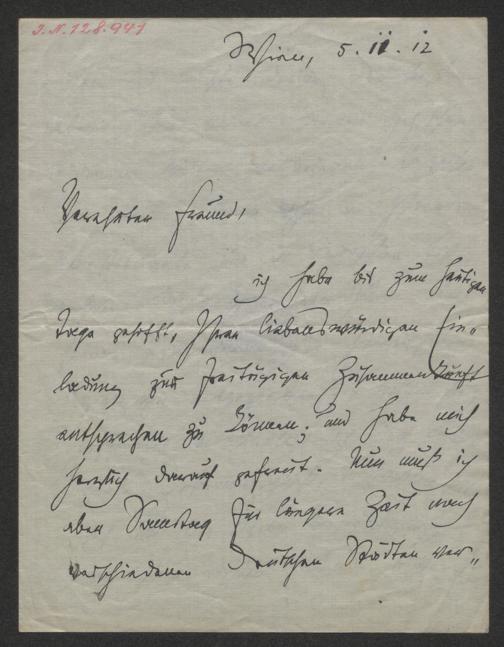 I.N. 128.941
Wien, 5. II. 12
Verehrter Freund,
ich habe bis zum heutigen
Tage gehofft, Ihrer liebenswürdigen Ein-
ladung zur freitägigen Zusammenkunft
entsprechen zu können, und habe mich
herzlich darauf gefreut. Nun muß ich
aber Samstag für längere Zeit nach
verschiedenen deutschen Städten ver-